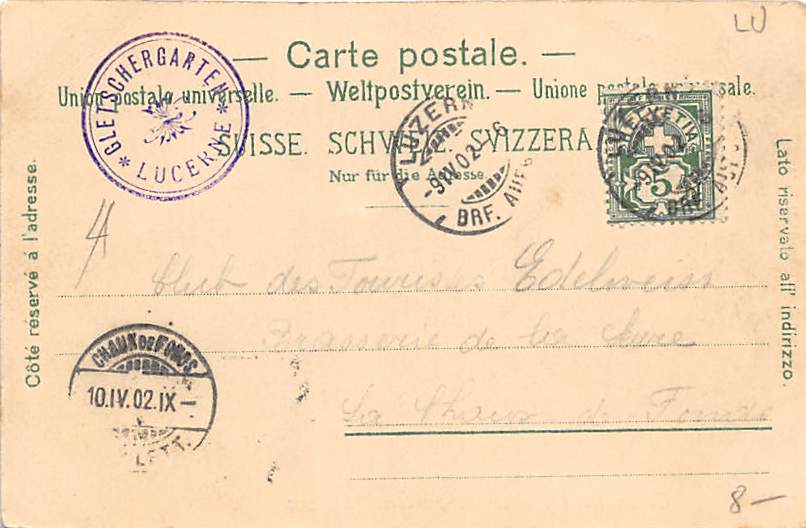 LU
GLETSCHERGARTEN
* LUCERNE *
— Carte postale. —
Union postale universelle. — Weltpostverein. — Unione postale universale.
SUISSE. SCHWEIZ. SVIZZERA
Nur für die Adresse.
LUZERN
-9.IV.02.-6
BRF. AUFG
HELVETIA
5
Côté réservé á l'adresse.
Lato riservato all' indirizzo.
Club des Touristes Edelweiss
Brasserie de la Serre
La Chaux-de-Fonds
CHAUX DE FONDS
10.IV.02.IX—
LETT.
8—